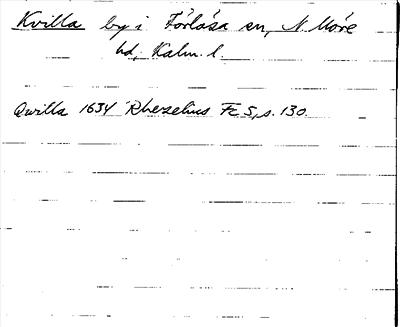 Kvilla by i Förlösa sn, N. Möre
hd, Kalm. l.
Qwilla 1634 Rhezelius Fc 5, s. 130.